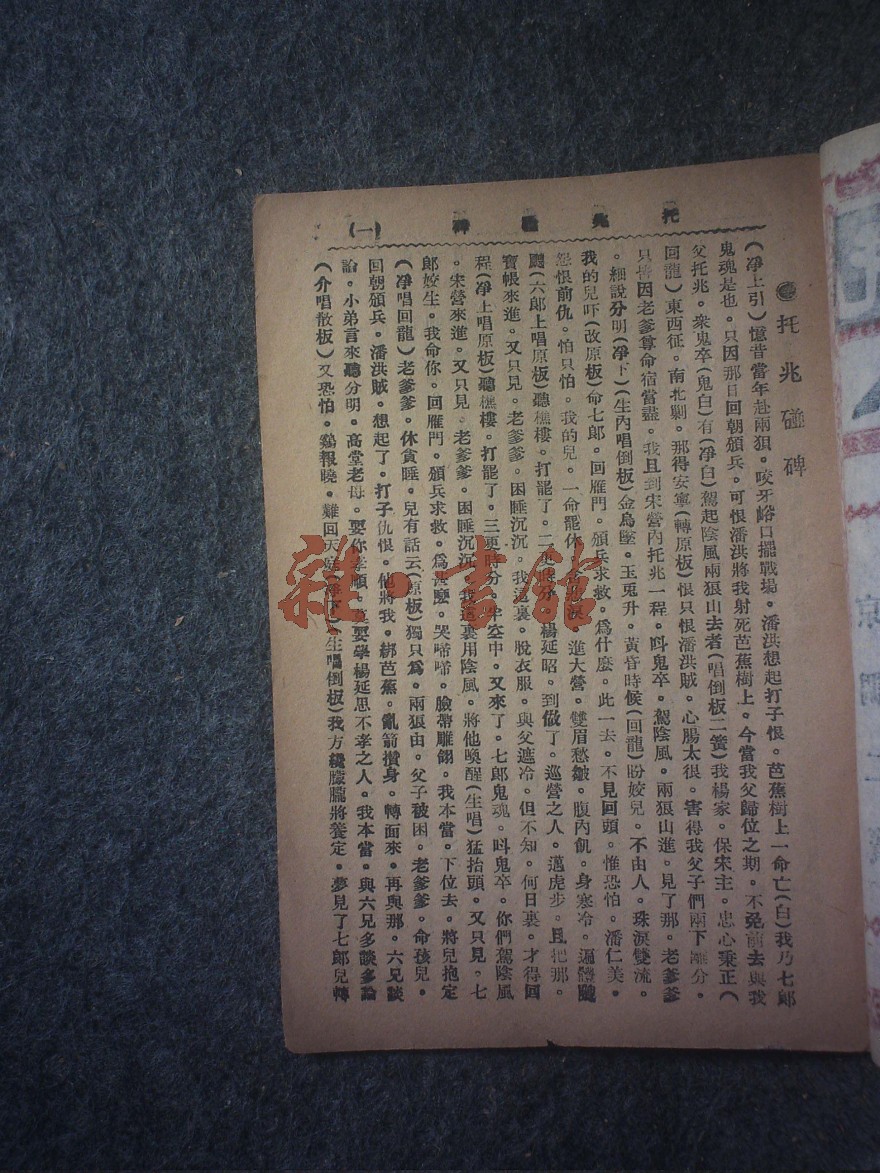 托兆碰碑 (一)
托兆碰碑
(凈上引)憶昔當年赴兩狼。咬牙峪口擺戰場。潘洪想起打子恨。芭蕉樹上一命亡(白)我乃七郎
鬼魂是也。只因那日回朝頒兵。可恨潘洪將我射死芭蕉樹上。今當我父歸位之期。不免前去與我
父托兆。衆鬼卒(鬼白)有(凈白)駕起陰風兩狼山去者(唱倒板二簧)我楊家。保宋主。忠心秉正(
回龍)東西征。南北剿。那得安寧(轉原板)恨只恨潘洪賊。心腸太很。害得我父子們兩下離分。
只皆因老爹尊命宿當盡。我且到宋營內托兆一程。呌鬼卒。駕陰風。兩狼山進。見了那。老爹爹
。細說分明(凈下)(生內唱倒板)金烏墜。玉兎升。黃昏時候(回龍)盼姣兒。不由人。珠淚雙流。
我的兒吓(改原板)命七郎。回雁門。頒兵求救。爲什麼。此一去。不見回頭。惟恐怕。潘仁美。
怨恨前仇。怕只怕。我的兒。一命罷休。淚。進大營。雙眉愁皺。腹內飢。身寒冷。遍體颼
颼(六郎上唱原板)聽樵樓。打罷了。二更時分。楊延昭。到做了。巡營之人。邁虎步。且把那。
寶帳來進。又只見。老爹爹。困睡沉沉。我這裏。脫衣服。與父遮冷。但不知。何日裏。才得回
程(凈上唱原板)聽樵樓。打罷了。三更時分。半空中。又來了。七郎鬼魂。呌鬼卒。你們駕陰風
。宋營來進。又只見。老爹爹。困睡沉沉。我這裏用陰風。將他喚醒(生唱)猛抬頭。又只見。七
郎姣生。我命你。回雁門。頒兵求救。爲甚麼。哭啼啼。臉帶雕翎。我本當。下位去。將兒抱定
(凈唱回龍)老爹爹。休貪睡。兒有話云(原板)獨只爲。兩狼由。父子被困。老爹爹。命孩兒。
回朝頒兵。潘洪賊。想起了。打子仇恨。他將我。綁芭蕉。亂箭攢身。轉面來。再與那。六兄談
論。小弟言來聽分明。高堂老母。要你孝順。要學楊延思不孝之人。我本當。與六兄多談多論
(介唱散板)又恐怕。鷄報曉。難回天庭(凈下)(生唱倒板)我方纔朦朧將養定。夢見了七郎兒轉
雜·書館